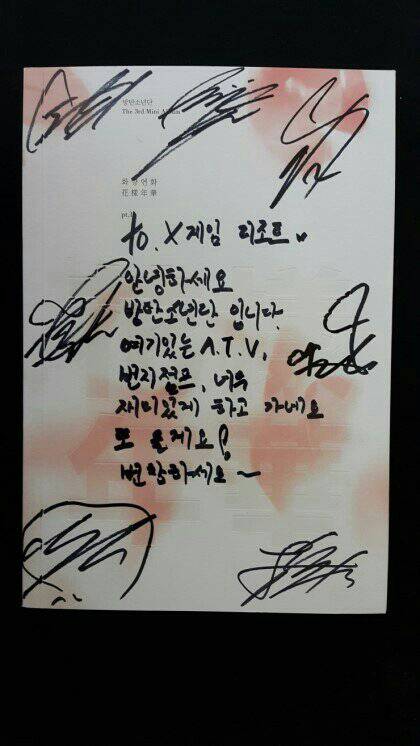 방탄소년단
The 3rd Mini Album
화양연화
花樣年華
pt.1
to. X게임 리조트..
안녕하세요
방탄소년단 입니다.
여기있는 A.T.V,
번지점프, 너무
재미있게 하고 가네요
또 올게요!
번창하세요~